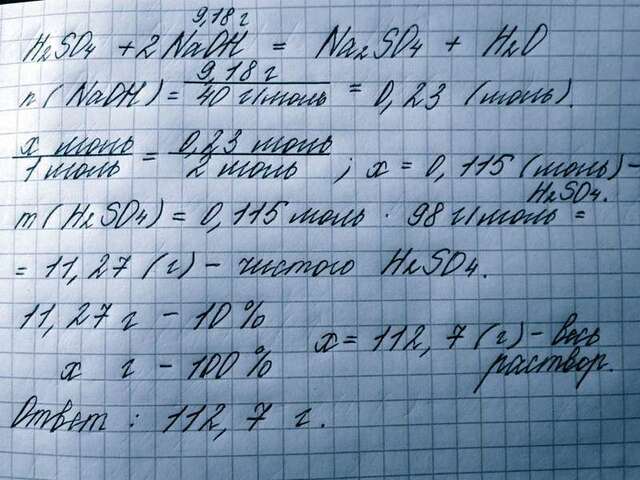 9,18 г
H₂SO₄ + 2 NaOH = Na₂SO₄ + H₂O
n (NaOH) = 9,18 г / 40 г/моль = 0,23 (моль).
x моль / 1 моль = 0,23 моль / 2 моль ; x = 0,115 (моль) –
H₂SO₄.
m (H₂SO₄) = 0,115 моль · 98 г/моль =
= 11,27 (г) – чистого H₂SO₄.
11,27 г – 10 %
x г – 100 %
x = 112,7 (г) – весь
раствор.
Ответ : 112,7 г.